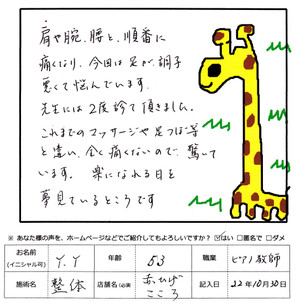 肩や腕、腰と、順番に
痛くなり、今回は足が、調子
悪くて悩んでいます。
先生には2度診て頂きました。
これまでのマッサージや足つぼ等
と違い、全く痛くないので、驚いて
います。 楽になれる日を
夢見ているところです
※ あなた様の声を、ホームページなどでご紹介してもよろしいですか？ ☑はい □匿名で □ダメ
お名前(イニシャル可) Y.Y 年齢 53 職業 ピアノ教師
施術名 整体 店舗名(必須) あかひげこころ 記入日 22年10月30日